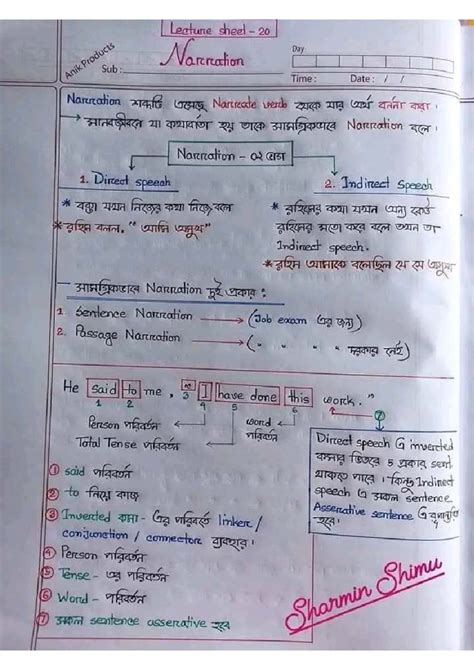 Lecture sheet - 20
Anik Products
Sub :
Narration
Day
Time :
Date : / /
Narration শব্দটি এসেছে Narrate verb থেকে যার অর্থ বর্ননা করা।
মানবজীবনে যা কথাবার্তা হয় তাকে সামগ্রিকভাবে Narration বলে।
Narration - ০২ প্রকার
1. Direct speech
2. Indirect speech
* বক্তা যখন নিজের কথা নিজে বলে
* রহিম বলল, "আমি অসুস্থ"
* রহিমের কথা যখন অন্য কেউ
রহিমের মতো করে বলে তখন তা
Indirect speech.
* রহিম আমাকে বলেছিল যে সে অসুস্থ
সামগ্রিকভাবে Narration দুই প্রকার :
1. Sentence Narration → (Job exam এর জন্য)
2. Passage Narration → ( " " " দরকার নেই)
He said to me, " I have done this work."
1 2 3 4 5 6 7
Person পরিবর্তন
word পরিবর্তন
Total Tense পরিবর্তন
① said পরিবর্তন
② to নিয়ে কাজ
③ Inverted কমা - এর পরিবর্তে linker /
conjunction / connectors ব্যবহার।
④ Person পরিবর্তন
⑤ Tense - এর পরিবর্তন
⑥ Word - পরিবর্তন
⑦ সকল sentence asserative হবে
Direct speech এ inverted
কমার ভিতরে 5 প্রকার sent.
থাকতে পারে। কিন্তু Indirect
speech এ সকল sentence
Asserative sentence এ
হবে।
Sharmin Shimu